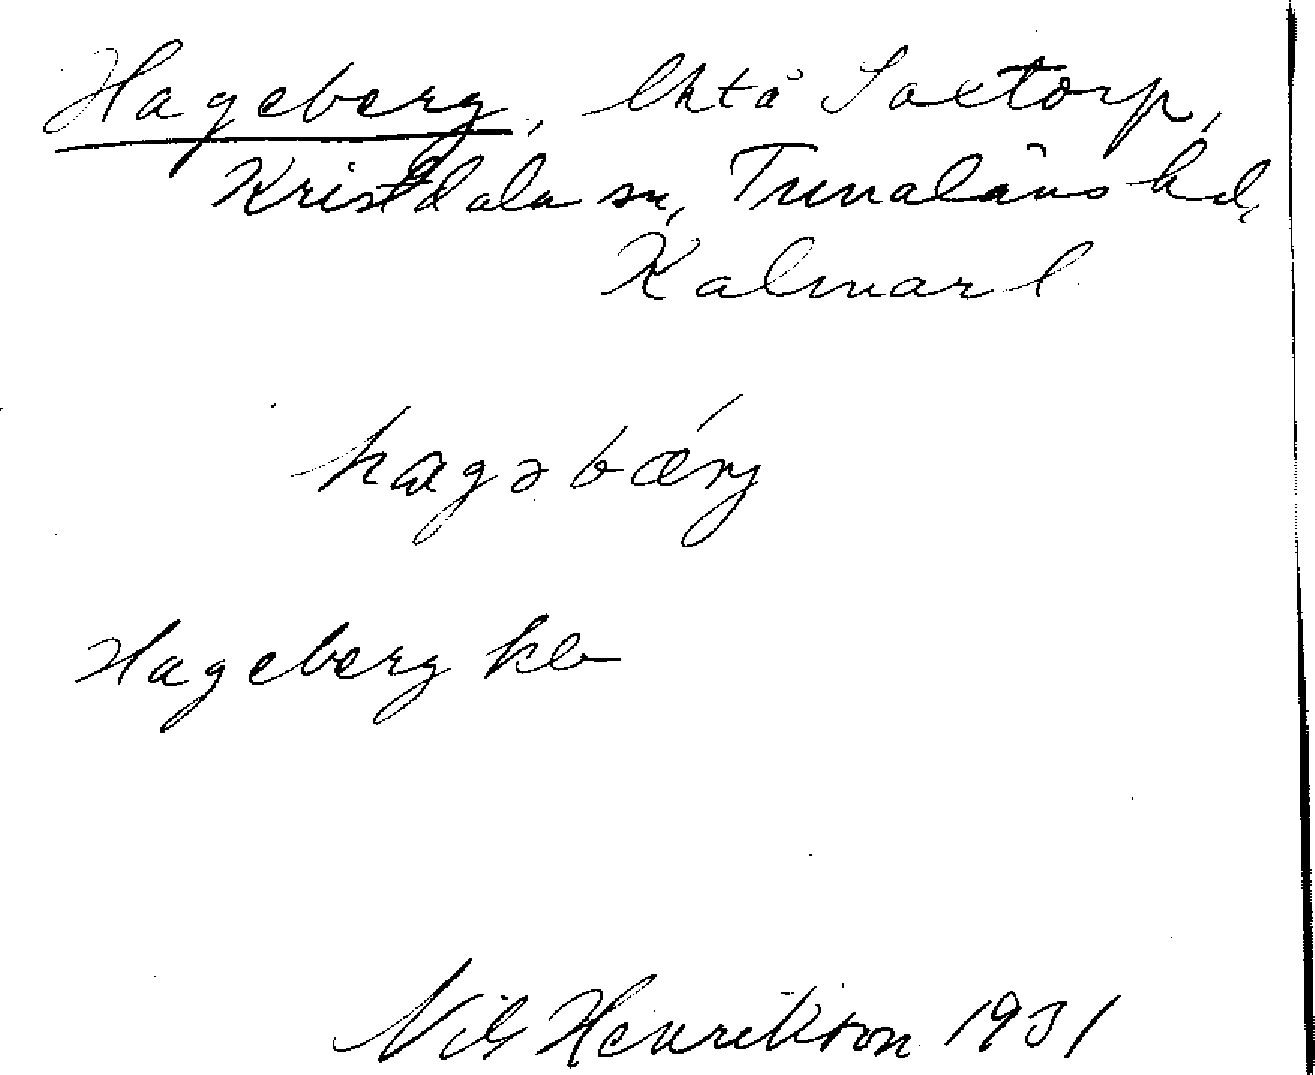 Hageberg, lht å Saxtorp,
Kristdala sn, Tunaläns hd,
Kalmar l
hagəbærj
Hageberg kb
Nils Henrikson 1931